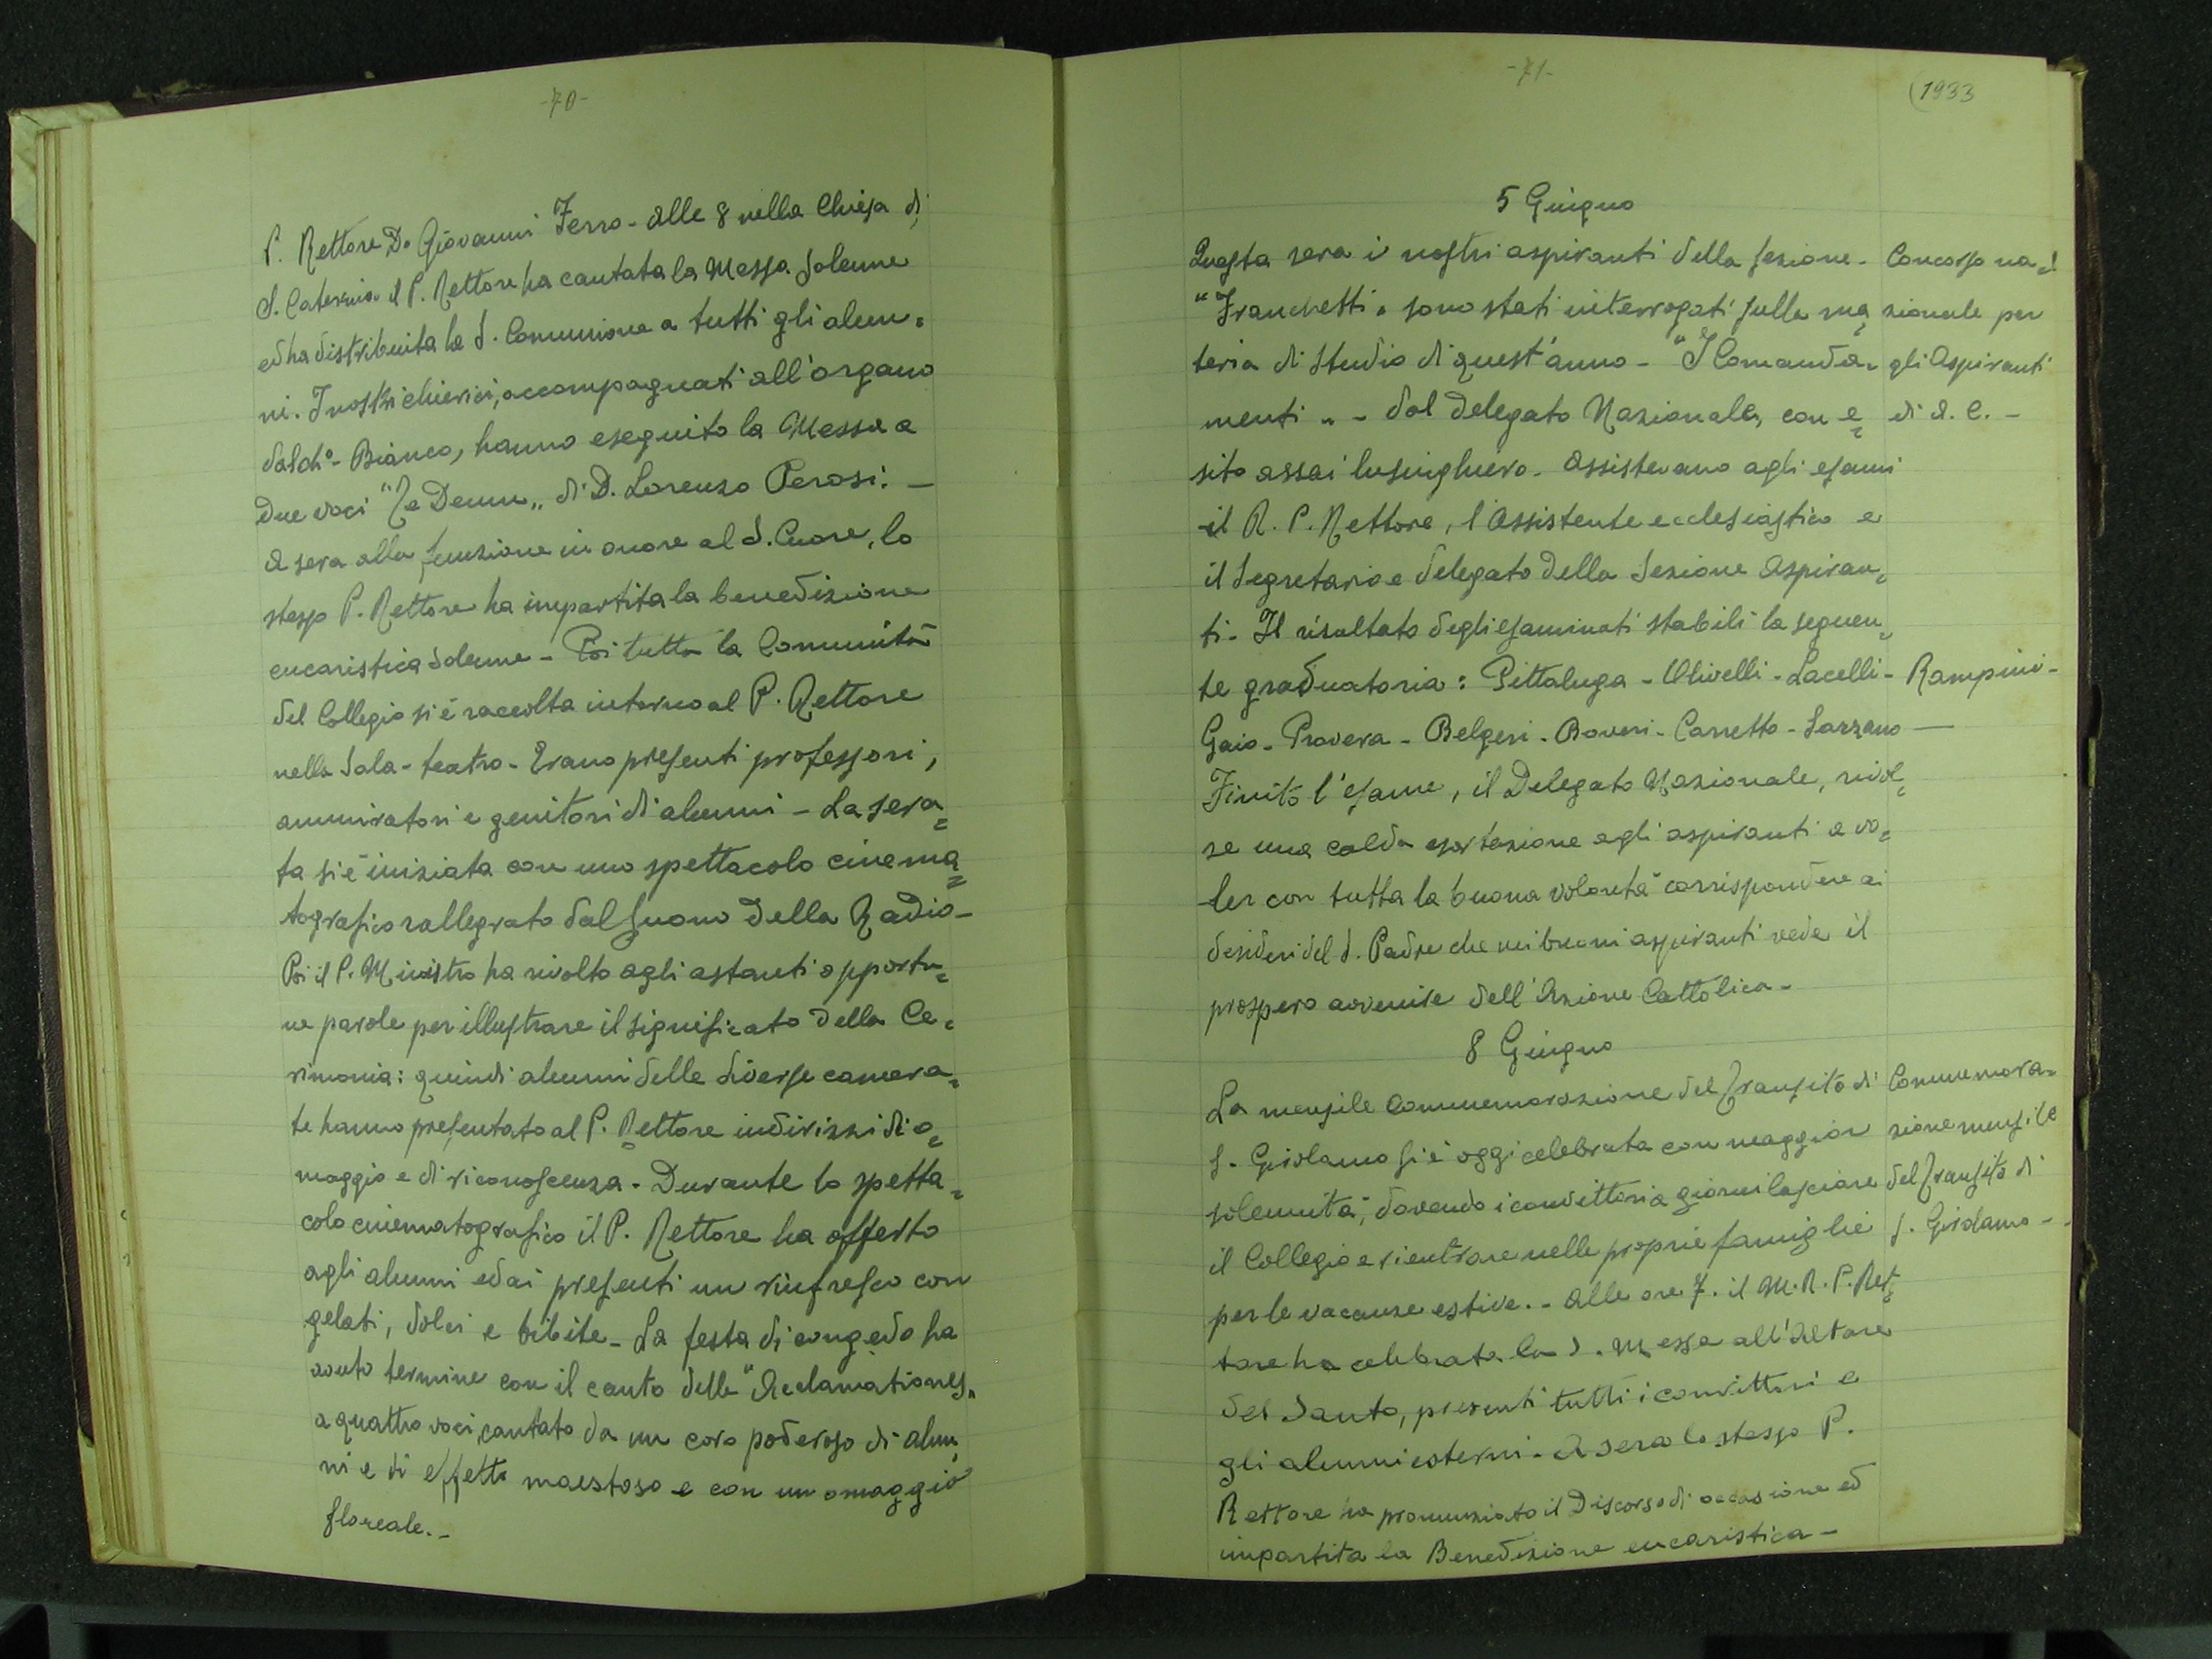 -70-
P. Rettore D. Giovanni Ferro - alle 8 nella Chiesa di
S. Caterina il P. Rettore ha cantata la Messa Solenne
ed ha distribuita la S. Comunione a tutti gli alun=
ni. I nostri chierici, accompagnati all'organo
dal ch.º Bianco, hanno eseguito la Messa a
due voci "Te Deum" di D. Lorenzo Perosi. -
A sera alla funzione in onore al S. Cuore, lo
stesso P. Rettore ha impartita la benedizione
eucaristica solenne - Poi tutta la Comunità
del Collegio si è raccolta intorno al P. Rettore
nella Sala-teatro - Erano presenti professori,
ammiratori e genitori di alunni - La sera=
ta si è iniziata con uno spettacolo cinema=
tografico rallegrato dal suono della Radio -
Poi il P. Ministro ha rivolto agli astanti opportu=
ne parole per illustrare il significato della Ce=
rimonia: quindi alunni delle diverse camera=
te hanno presentato al P. Rettore indirizzi di o=
maggio e di riconoscenza - Durante lo spetta=
colo cinematografico il P. Rettore ha offerto
agli alunni ed ai presenti un rinfresco con
gelati, dolci e bibite - La festa di congedo ha
avuto termine con il canto delle "Acclamationes"
a quattro voci, cantato da un coro poderoso di alun=
ni e di effetto maestoso e con un omaggio
floreale. -
-71-
(1933
5 Giugno
Questa sera i nostri aspiranti della sezione -
"Franchetti" sono stati interrogati sulla ma=
teria di studio di quest'anno - "I Comanda=
menti" - dal Delegato Nazionale, con e=
sito assai lusinghiero. Assistevano agli esami
il R. P. Rettore, l'Assistente ecclesiastico e
il Segretario e delegato della Sezione Aspiran=
ti - Il risultato degli esaminati stabilì la seguen=
te graduatoria: Pittaluga - Olivelli - Lacelli - Rampini -
Gaio - Provera - Belgeri - Boveri - Carretto - Sarzano -
Finito l'esame, il Delegato Nazionale, rivol=
se una calda esortazione agli aspiranti a vo=
ler con tutta la buona volontà corrispondere ai
desideri del S. Padre che nei buoni aspiranti vede il
prospero avvenire dell'Azione Cattolica -
Concorso na=
zionale per
gli Aspiranti
di A. C. -
8 Giugno
La mensile commemorazione del Transito di
S. Girolamo si è oggi celebrata con maggior
solennità, dovendo i convittori a giorni lasciare
il Collegio e rientrare nelle proprie famiglie
per le vacanze estive. - Alle ore 7. il M. R. P. Ret=
tore ha celebrata la S. Messa all'Altare
del Santo, presenti tutti i convittori e
gli alunni esterni - A sera lo stesso P.
Rettore ha pronunziato il Discorso di occasione ed
impartita la Benedizione eucaristica -
Commemora=
zione mensile
del Transito di
S. Girolamo -